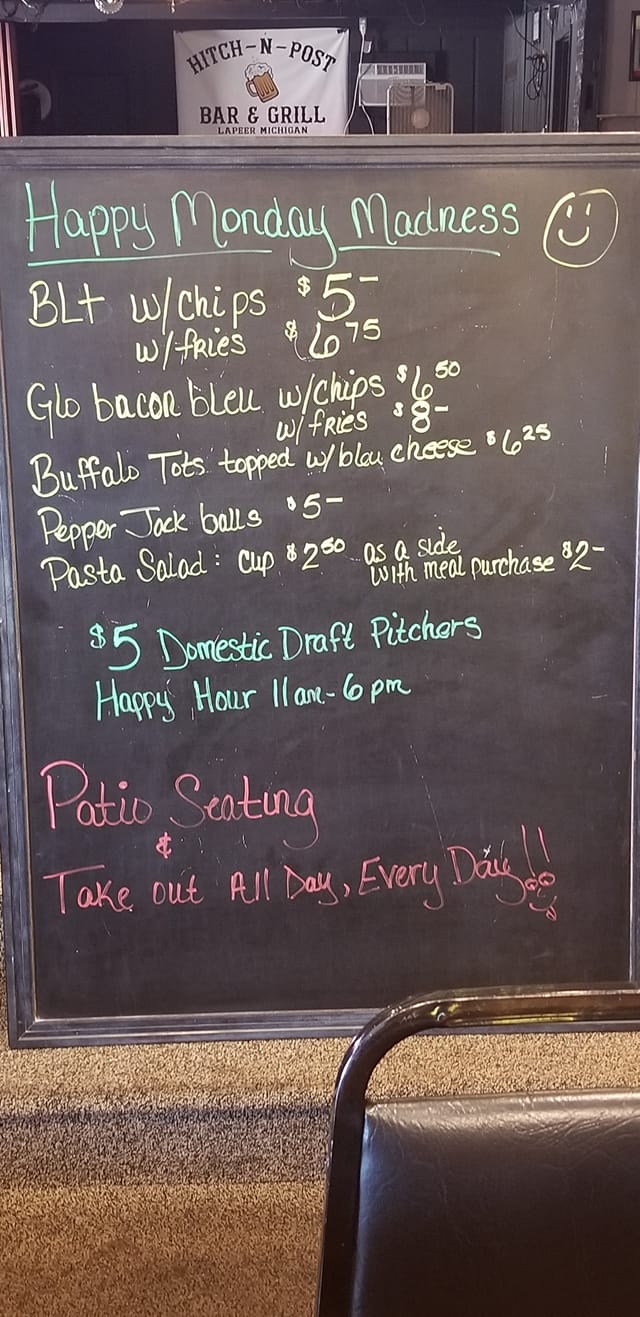 HITCH-N-POST
BAR & GRILL
LAPEER MICHIGAN
Happy Monday Madness
BLt w/chips $5-
w/fries $6 75
Glo bacon bleu w/chips $6 50
w/fries $8-
Buffalo Tots topped w/bleu cheese $6 25
Pepper Jack balls $5-
Pasta Salad: Cup $2 50 as a side
with meal purchase $2-
$5 Domestic Draft Pitchers
Happy Hour 11am-6pm
Patio Seating
&
Take out All Day, Every Day!!